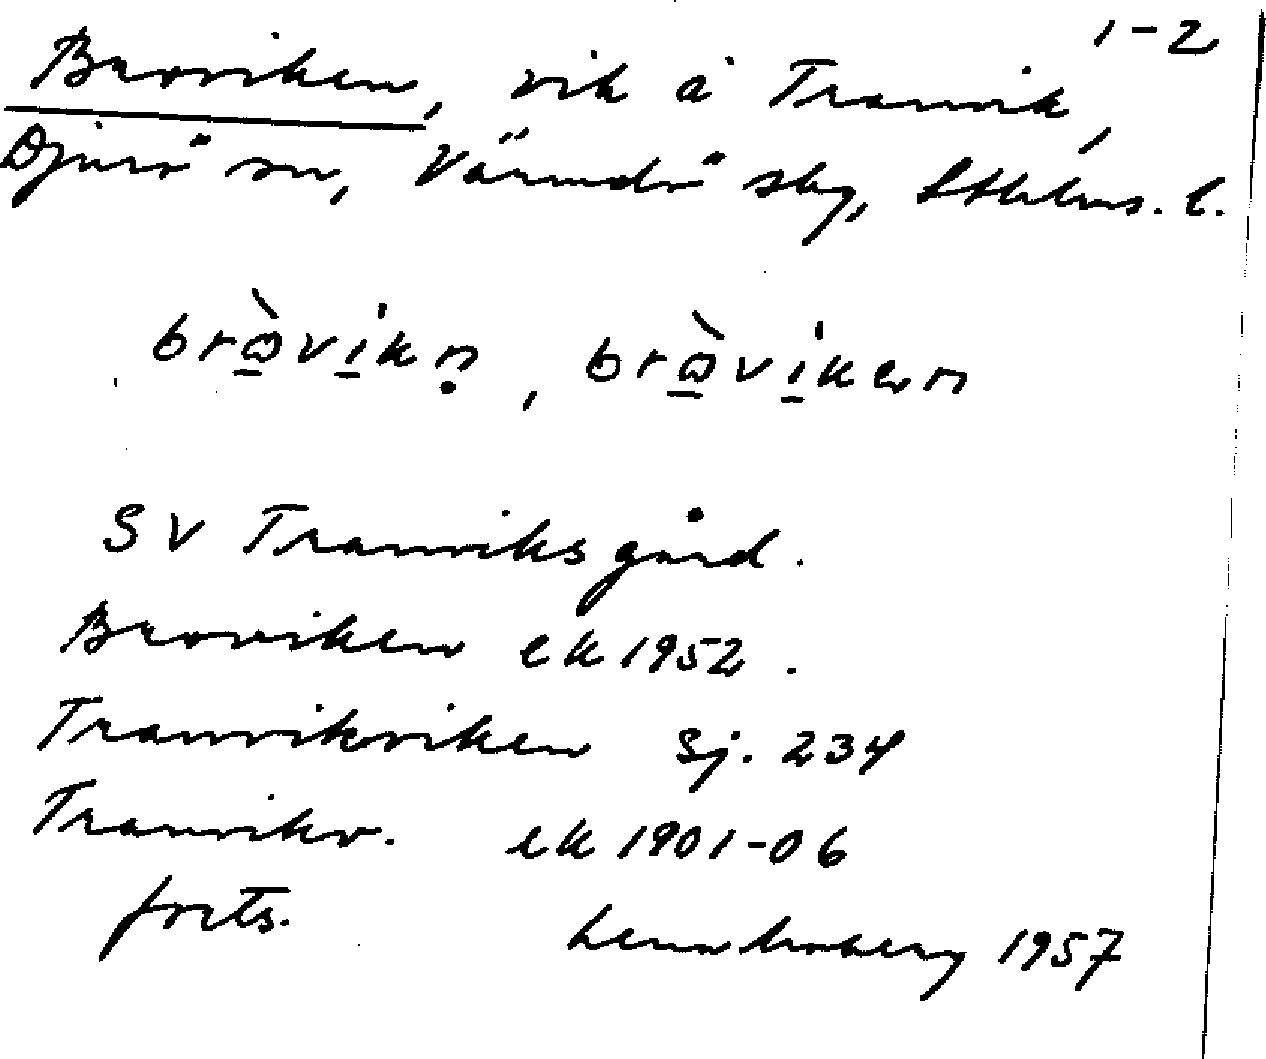 1-2
Broviken, vik å Tranvik,
Djurö sn, Värmdö skg, Sthlms. l.
bròvikn, bròviken
SV Tranviks gård.
Broviken ek 1952.
Tranvikviken Sj. 234
Tranvikv. ek 1901-06
forts. 1957